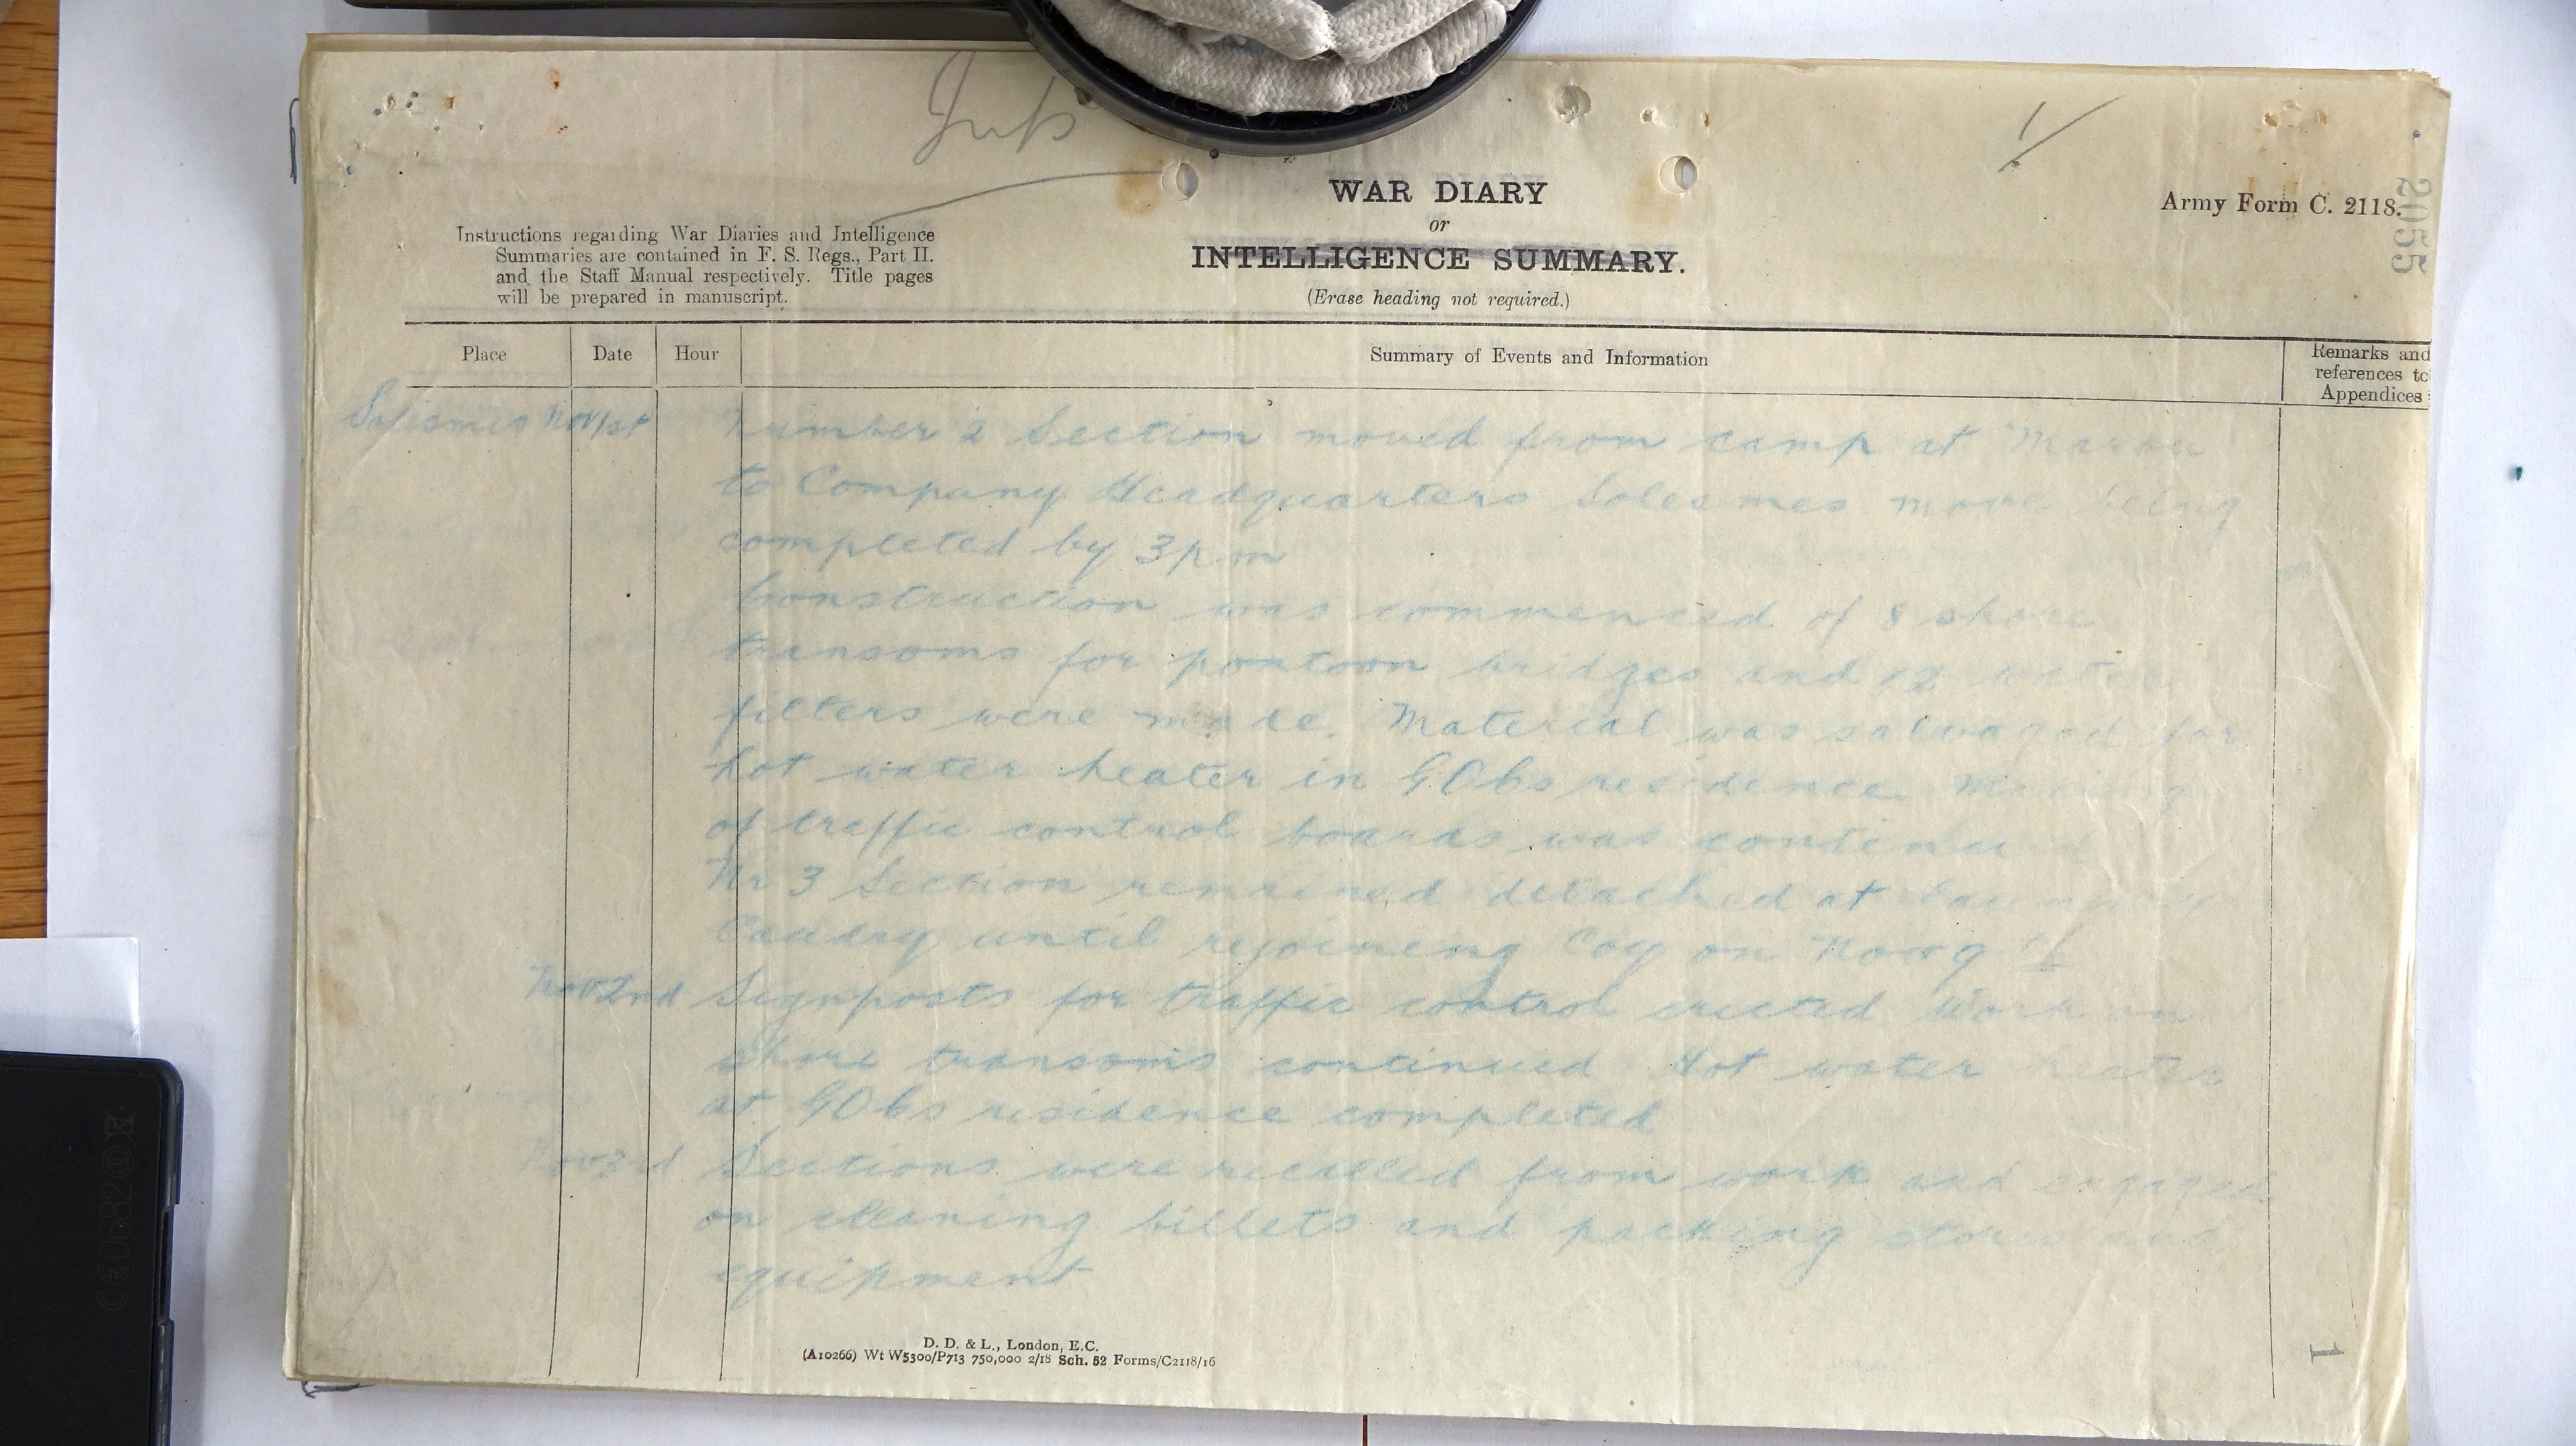 1/
WAR DIARY
or
INTELLIGENCE SUMMARY.
(Erase heading not required.)
Army Form C. 2118.
2055
Instructions regarding War Diaries and Intelligence
Summaries are contained in F. S. Regs., Part II.
and the Staff Manual respectively. Title pages
will be prepared in manuscript.
Place Date Hour Summary of Events and Information Remarks and references to Appendices
Solesmes Nov 1st Number 2 Section moved from camp at Marou
to Company Headquarters Solesmes move being
completed by 3pm
Construction was commenced of 8 shore
transoms for pontoon bridges and 12 water
filters were made. Material was salvaged for
hot water heater in GOCs residence. Making
of traffic control boards was continued
Nr 3 Section remained detached at
Caudry until rejoining Coy on Nov 9
Nov 2nd Signposts for traffic control erected Work on
shore transoms continued Hot water heater
at GOCs residence completed
Nov 3rd Sections were recalled from work and engaged
on cleaning billets and packing stores and
equipment
D. D. & L., London, E.C.
(A10266) Wt W5300/P713 750,000 2/18 Sch. 52 Forms/C2118/16
1